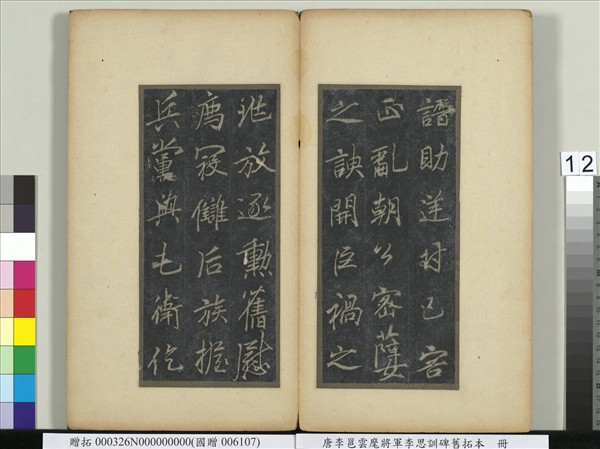 譖助逆封己害
正亂朝公密蔞
之誅開臣禍之
兆放逐勳舊慰
薦寇讎后族握
兵黨與屯衛仡
12
贈拓 000326N000000000(國贈 006107)
唐李邕雲麾將軍李思訓碑舊拓本 冊